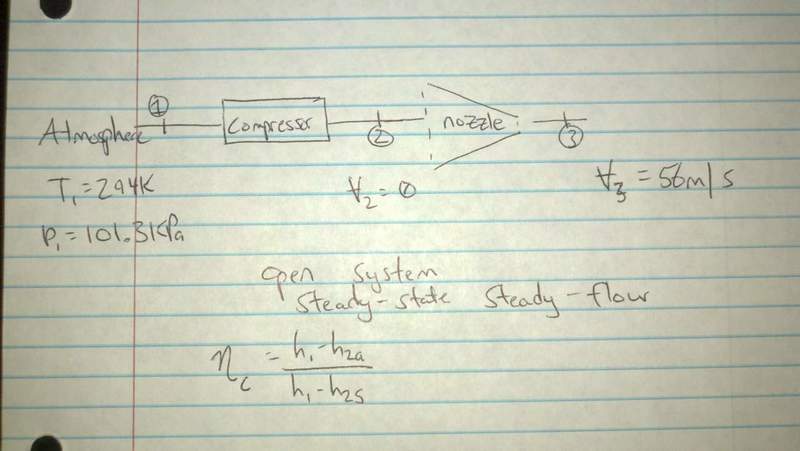 ①
Atmosphere
compressor
②
nozzle
③
T₁ = 294K
V₂ = 0
V₃ = 56m/s
P₁ = 101.3KPa
open system
steady-state steady-flow
η_c = (h₁-h₂ₐ)/(h₁-h₂ₛ)